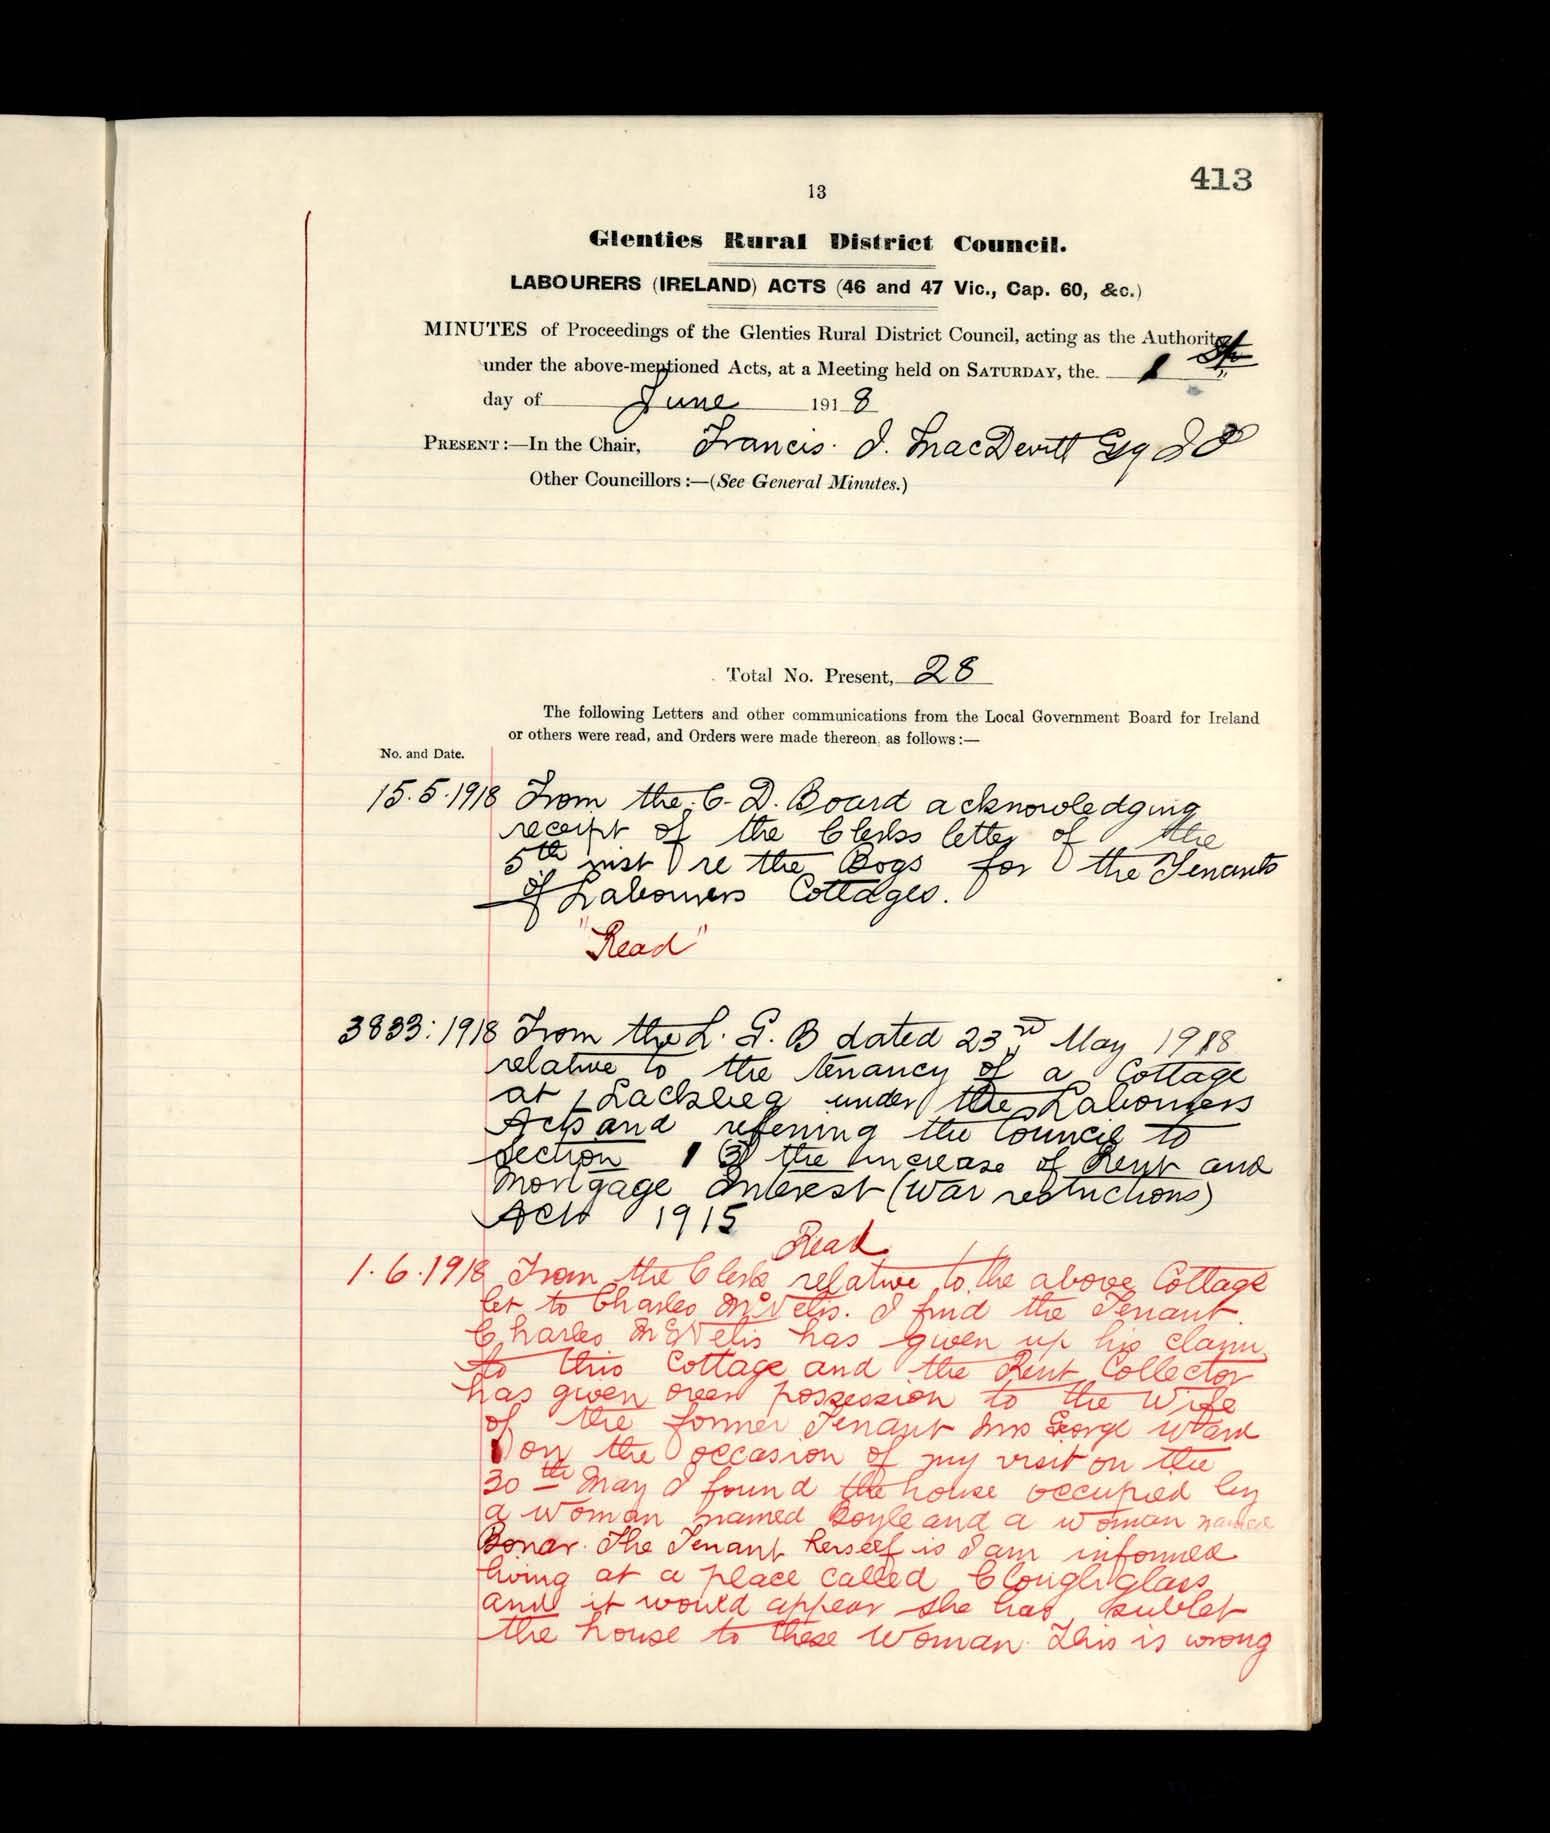 413
13
Glenties Rural District Council.
LABOURERS (IRELAND) ACTS (46 and 47 Vic., Cap. 60, &c.)
MINUTES of Proceedings of the Glenties Rural District Council, acting as the Authority
under the above-mentioned Acts, at a Meeting held on SATURDAY, the 1st
day of June 1918
PRESENT:—In the Chair, Francis. J. MacDevitt Esq J P
Other Councillors:—(See General Minutes.)
Total No. Present, 28
The following Letters and other communications from the Local Government Board for Ireland
or others were read, and Orders were made thereon, as follows:—
No. and Date.
15.5.1918 From the C. D. Board acknowledging
receipt of the Clerks letter of the
5th inst re the Bogs for the Tenants
of Labourers Cottages.
"Read"
3833:1918 From the L. G. B dated 23rd May 1918
relative to the tenancy of a Cottage
at Lackbeg under the Labourers
Acts and refering the Council to
Section 1 (3) the increase of Rent and
Mortgage Interest (War restrictions)
Act 1915
Read
1.6.1918 From the Clerk relative to the above Cottage
let to Charles McVelis. I find the Tenant
Charles McVelis has given up his claim
to this Cottage and the Rent Collector
has given over possession to the Wife
of the former Tenant Mrs George Ward
on the occasion of my visit on the
30th May I found the house occupied by
a woman named Boyle and a woman named
Boner. The Tenant herself is I am informed
living at a place called Cloughglass
and it would appear she has sublet
the house to these Woman. This is wrong